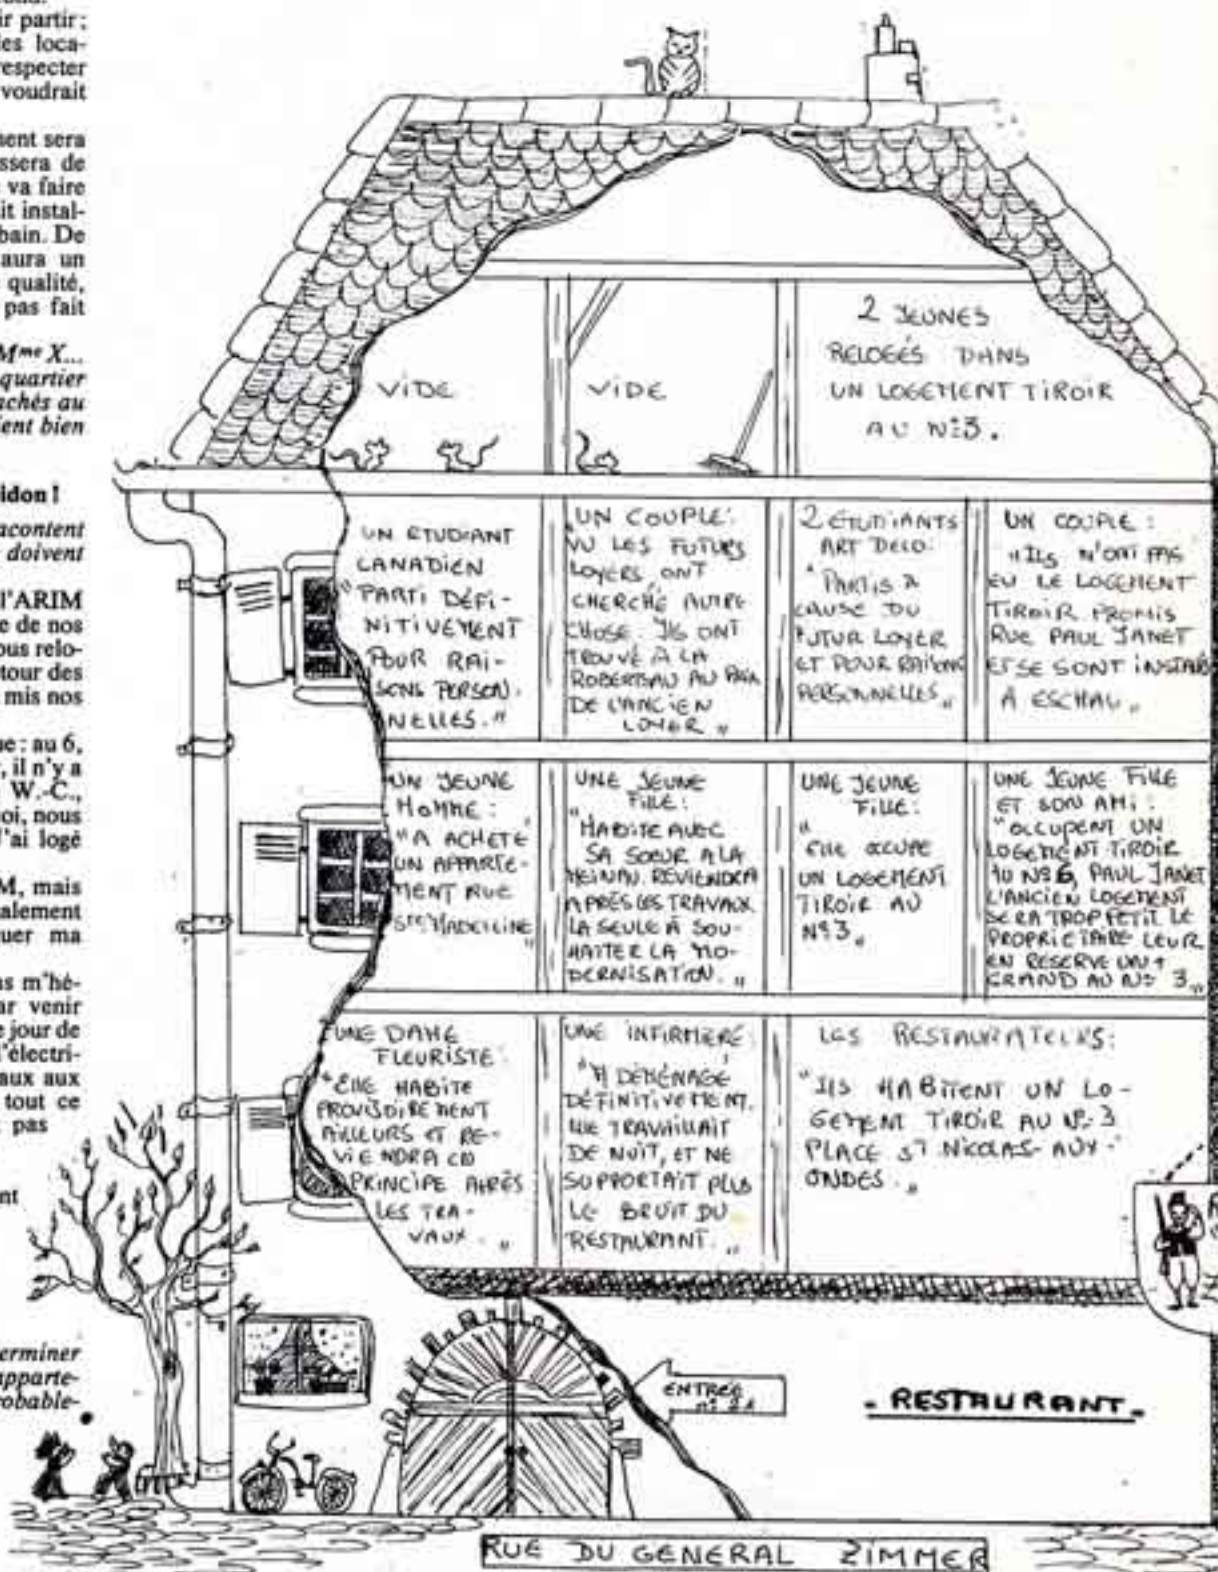 ir partir ;
les loca-
respecter
voudrait
ment sera
ssera de
va faire
it instal-
bain. De
aura un
qualité,
pas fait
Mme X...
quartier
achés au
ient bien
idon !
acontent
doivent
l'ARIM
e de nos
ous relo-
tour des
mis nos
ue : au 6,
, il n'y a
W.-C.,
oi, nous
J'ai logé
M, mais
alement
uer ma
as m'hé-
ar venir
e jour de
l'électri-
aux aux
tout ce
pas
nt
erminer
apparte-
robable-
VIDE
VIDE
2 JEUNES
RELOGÉS DANS
UN LOGEMENT TIROIR
AU N°3.
UN ETUDIANT
CANADIEN
"PARTI DÉFI-
NITIVEMENT
POUR RAI-
SONS PERSON.
NELLES."
UN COUPLE:
"VU LES FUTURS
LOYERS, ONT
CHERCHÉ AUTRE
CHOSE. ILS ONT
TROUVÉ À LA
ROBERTSAU AU PRIX
DE L'ANCIEN
LOYER"
2 ETUDIANTS
ART DECO:
"PARTIS À
CAUSE DU
FUTUR LOYER
ET POUR RAISONS
PERSONNELLES"
UN COUPLE:
"ILS N'ONT PAS
EU LE LOGEMENT
TIROIR PROMIS
RUE PAUL JANET
ET SE SONT INSTALLÉS
À ESCHAU"
UN JEUNE
HOMME:
"A ACHETÉ
UN APPARTE-
MENT RUE
STE MADELEINE"
UNE JEUNE
FILLE:
"HABITE AVEC
SA SOEUR A LA
MEINAU. REVIENDRA
APRÈS LES TRAVAUX
LA SEULE À SOU-
HAITER LA MO-
DERNISATION."
UNE JEUNE
FILLE:
"ELLE OCCUPE
UN LOGEMENT
TIROIR AU
N°3"
UNE JEUNE FILLE
ET SON AMI:
"OCCUPENT UN
LOGEMENT TIROIR
AU N°6, PAUL JANET
L'ANCIEN LOGEMENT
SERA TROP PETIT LE
PROPRIETAIRE LEUR
EN RESERVE UN +
GRAND AU N° 3"
UNE DAME
FLEURISTE:
"ELLE HABITE
PROVISOIREMENT
AILLEURS ET RE-
VIENDRA EN
PRINCIPE APRÈS
LES TRA-
VAUX."
UNE INFIRMIERE:
"A DÉMÉNAGÉ
DÉFINITIVEMENT.
ELLE TRAVAILLAIT
DE NUIT, ET NE
SUPPORTAIT PLUS
LE BRUIT DU
RESTAURANT."
LES RESTAURATEURS:
"ILS HABITENT UN LO-
GEMENT TIROIR AU N°3
PLACE ST NICOLAS-AUX-
ONDES."
ENTRÉE
n° 21
- RESTAURANT -
RUE DU GENERAL ZIMMER